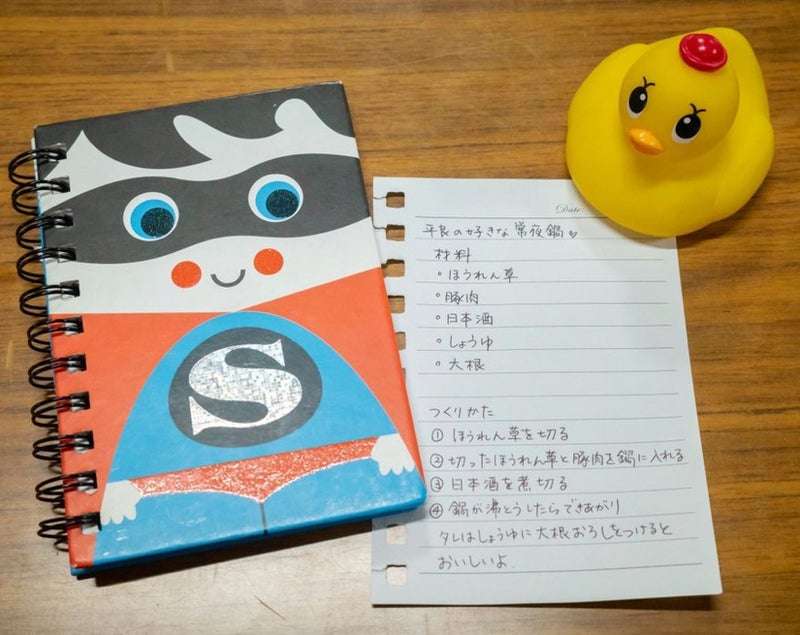 S
Date
平良の好きな常夜鍋♡
材料
・ほうれん草
・豚肉
・日本酒
・しょうゆ
・大根
つくりかた
① ほうれん草を切る
② 切ったほうれん草と豚肉を鍋に入れる
③ 日本酒を煮切る
④ 鍋が沸とうしたらできあがり
タレはしょうゆに大根おろしをつけると
おいしいよ